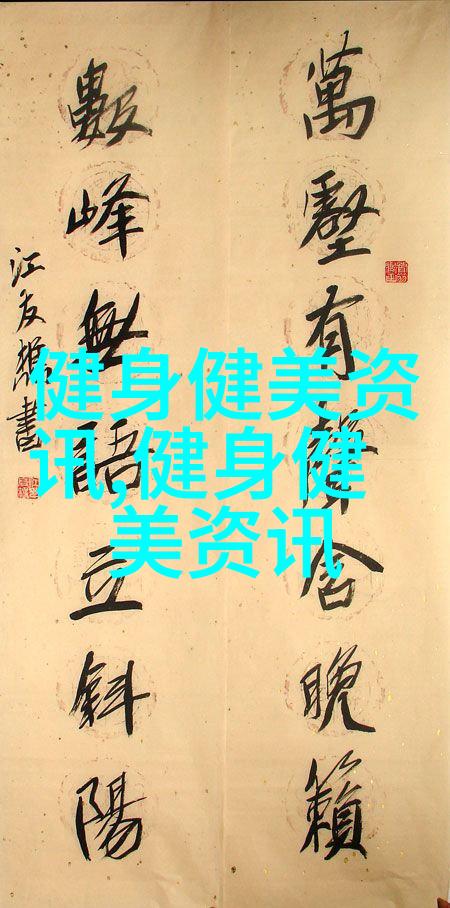 萬壑有聲含晚籟
數峰無語立斜陽
江友樵書
健身健美资
讯,健身健
美资讯